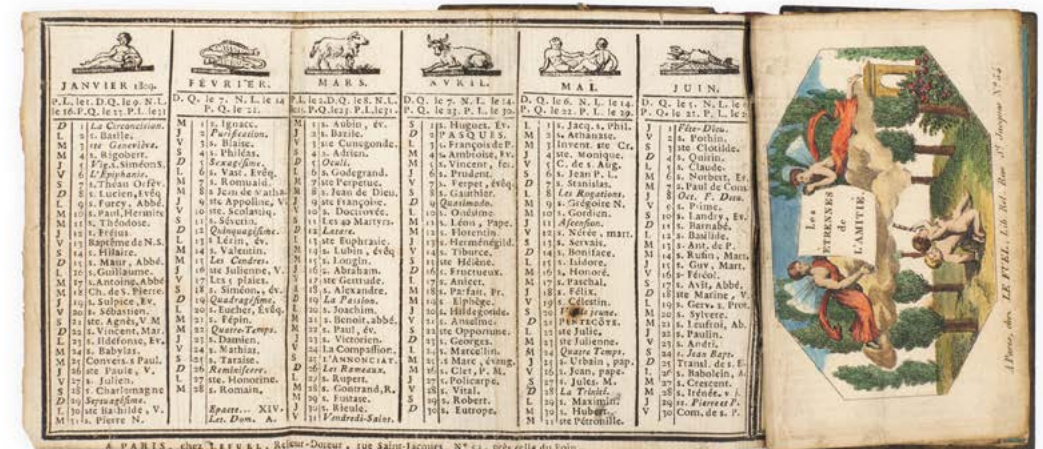 JANVIER 1809.
P. L. le 1. D. Q. le 9. N. L.
le 16. P. Q. le 23. P. L. le 31
D 1 La Circoncision.
L 2 s. Basile.
M 3 ste Geneviève.
M 4 s. Rigobert.
J 5 Vig. s. Siméon S.
V 6 L'Épiphanie.
S 7 s. Théau Orfèv.
D 8 s. Lucien, Evêq.
L 9 s. Furcy, Abbé.
M 10 s. Paul, Hermite
M 11 s. Théodose.
J 12 s. Fréjus.
V 13 Baptême de N. S.
S 14 s. Hilaire.
D 15 s. Maur, Abbé.
L 16 s. Guillaume.
M 17 s. Antoine. Abbé
M 18 Ch. de S. Pierre.
J 19 s. Sulpice, Ev.
V 20 s. Sébastien.
S 21 ste. Agnès, V. M
D 22 s. Vincent, Mar.
L 23 s. Ildéfonse, Ev.
M 24 s. Babylas.
M 25 Convers. s Paul.
J 26 ste Paule, V.
V 27 s. Julien.
S 28 s. Charlemagne
D 29 Septuagéſime.
L 30 ste Bathilde, V.
M 31 s. Pierre N.
FÉVRIER.
D. Q. le 7. N. L. le 14
P. Q. le 21.
M 1 s. Ignace.
J 2 Purification.
V 3 s. Blaise.
S 4 s. Philéas.
D 5 Sexagéſime.
L 6 s. Vast, Evêq.
M 7 s. Romuald.
M 8 s. Jean de Matha
J 9 ste Appoline, V.
V 10 ste. Scolastiq.
S 11 s. Séverin.
D 12 Quinquagéſime.
L 13 s. Lézin, év.
M 14 s. Valentin.
M 15 Les Cendres.
J 16 ste Julienne, V.
V 17 Les 5 plaies.
S 18 s. Siméon, év.
D 19 Quadragéſime.
L 20 s. Eucher, Évêq.
M 21 s. Pépin.
M 22 Quatre-Temps.
J 23 s. Damien.
V 24 s. Mathias.
S 25 s. Taraise.
D 26 Reminiſcere.
L 27 ste. Honorine.
M 28 s. Romain.
Epacte... XIV.
Let. Dom. A.
MARS.
P. L. le 2. D. Q. le 8. N. L.
P. Q. le 23. P. L. le 31.
M 1 s. Aubin, év.
J 2 s. Bazile.
V 3 ste Cunegonde.
S 4 s. Adrien.
D 5 Oculi.
L 6 s. Godegrand.
M 7 ste Perpetue.
M 8 s. Jean de Dieu.
J 9 ste Françoise.
V 10 s. Doctrovée.
S 11 Les 40 Martyrs.
D 12 Lætare.
L 13 ste Euphrasie.
M 14 s. Lubin, évêq
M 15 s. Longin.
J 16 s. Abraham.
V 17 ste Gertrude.
S 18 s. Alexandre.
D 19 La Passion.
L 20 s. Joachim.
M 21 s. Benoit, abbé.
M 22 s. Paul, év.
J 23 s. Victorien.
V 24 La Compaſſion.
S 25 L'ANNONCIAT.
D 26 Les Rameaux.
L 27 s. Rupert.
M 28 s. Gontrand, R.
M 29 s. Eustase.
J 30 s. Rieule.
V 31 Vendredi-Saint.
AVRIL.
D. Q. le 7. N. L. le 14.
P. Q. le 23. P. L. le 30.
S 1 s. Hugues. Ev.
D 2 PASQUES.
L 3 s. François de P.
M 4 s. Ambroise, Ev.
M 5 s. Vincent, fer.
J 6 s. Prudent.
V 7 s. Verpet, évêq
S 8 s. Gauthier.
D 9 Quaſimodo.
L 10 s. Onésime.
M 11 s. Léon, Pape.
M 12 s. Florentin.
J 13 s. Herménégild.
V 14 s. Tiburce.
S 15 ste Hélène.
D 16 s. Fructueux.
L 17 s. Anicet.
M 18 s. Parfait, Pr.
M 19 s. Elphège.
J 20 s. Hildegonde.
V 21 s. Anselme.
S 22 ste Opportune.
D 23 s. Georges.
L 24 s. Marcellin.
M 25 s. Marc, évang.
M 26 s. Clet, P. M.
J 27 s. Policarpe.
V 28 s. Vital.
S 29 s. Robert.
D 30 s. Eutrope.
MAI.
D. Q. le 6. N. L. le 14.
P. Q. le 22. P. L. le 29.
L 1 s. Jacq. s. Phil.
M 2 s. Athanase.
M 3 Invent. ste Cr.
J 4 ste. Monique.
V 5 C. de s. Aug.
S 6 s. Jean P. L.
D 7 s. Stanislas.
L 8 Les Rogations.
M 9 s. Grégoire N.
M 10 s. Gordien.
J 11 Ascension.
V 12 s. Nérée, mart.
S 13 s. Servais.
D 14 s. Boniface.
L 15 s. Isidore.
M 16 s. Honoré.
M 17 s. Paschal.
J 18 s. Félix.
V 19 s. Célestin.
S 20 jeune.
D 21 PENTECÔTS.
L 22 ste Julie.
M 23 ste Julienne.
M 24 Quatre Temps.
J 25 s. Urbain, pap.
V 26 s. Jean, pape.
S 27 s. Jules. M.
D 28 La Trinité.
L 29 s. Maximin.
M 30 s. Hubert.
M 31 ste Pétronille.
JUIN.
D. Q. le 5. N. L. le
P. Q. le 21. P. L. le 2
J 1 Fête-Dieu.
V 2 s. Pothin.
S 3 ste Clotilde.
D 4 s. Quirin.
L 5 s. Claude.
M 6 s. Norbert, Ev.
M 7 s. Paul de Cons
J 8 Oct. F. Dieu.
V 9 s. Prime.
S 10 s. Landry, Ev.
D 11 s. Barnabé.
L 12 s. Basilide.
M 13 s. Ant. de P.
M 14 s. Rufin, Mart.
J 15 s. Guy, Mart.
V 16 s. Féréol.
S 17 s. Avit, Abbé
D 18 ste Marine, V.
L 19 s. Gerv. s. Prot.
M 20 s. Sylvere.
M 21 s. Leufroi, Ab.
J 22 s. Paulin.
V 23 s. André.
S 24 s. Jean Bapt.
D 25 Transl. de s. E.
L 26 s. Babolein, A.
M 27 s. Crescent.
M 28 s. Irénée. v. j.
J 29 ss. Pierre et P.
V 30 Com. de s. P.
A PARIS, chez LEFUEL, Relieur-Doreur, rue Saint-Jacques, N° 54, près celle du Foin
Les
ETRENNES
de
L'AMITIÉ
A Paris, chez LE FUEL, Lib. Rel. Rue St. Jacques N° 54